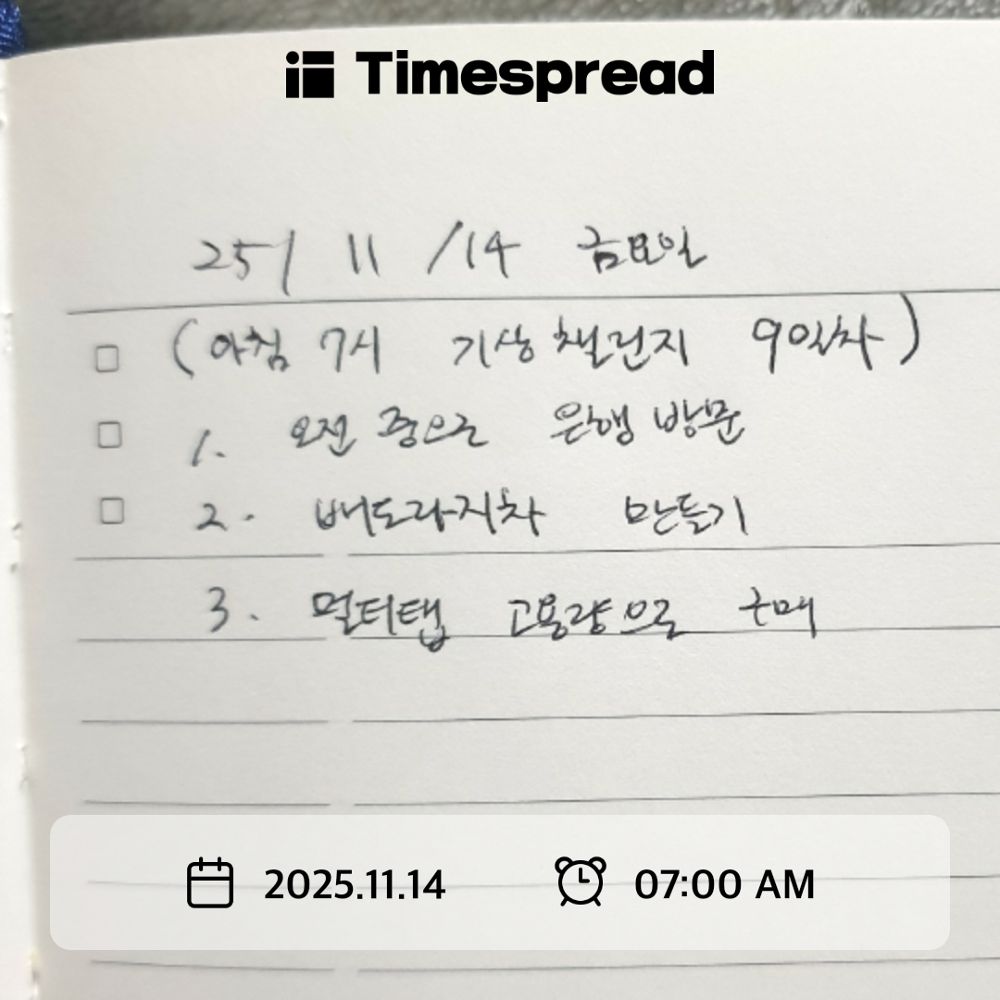 Timespread
25/ 11 /14 금요일
(아침 7시 기상챌린지 9일차)
1. 오전 중으로 은행 방문
2. 배도라지차 만들기
3. 멀티탭 고용량으로 구매
2025.11.14 07:00 AM